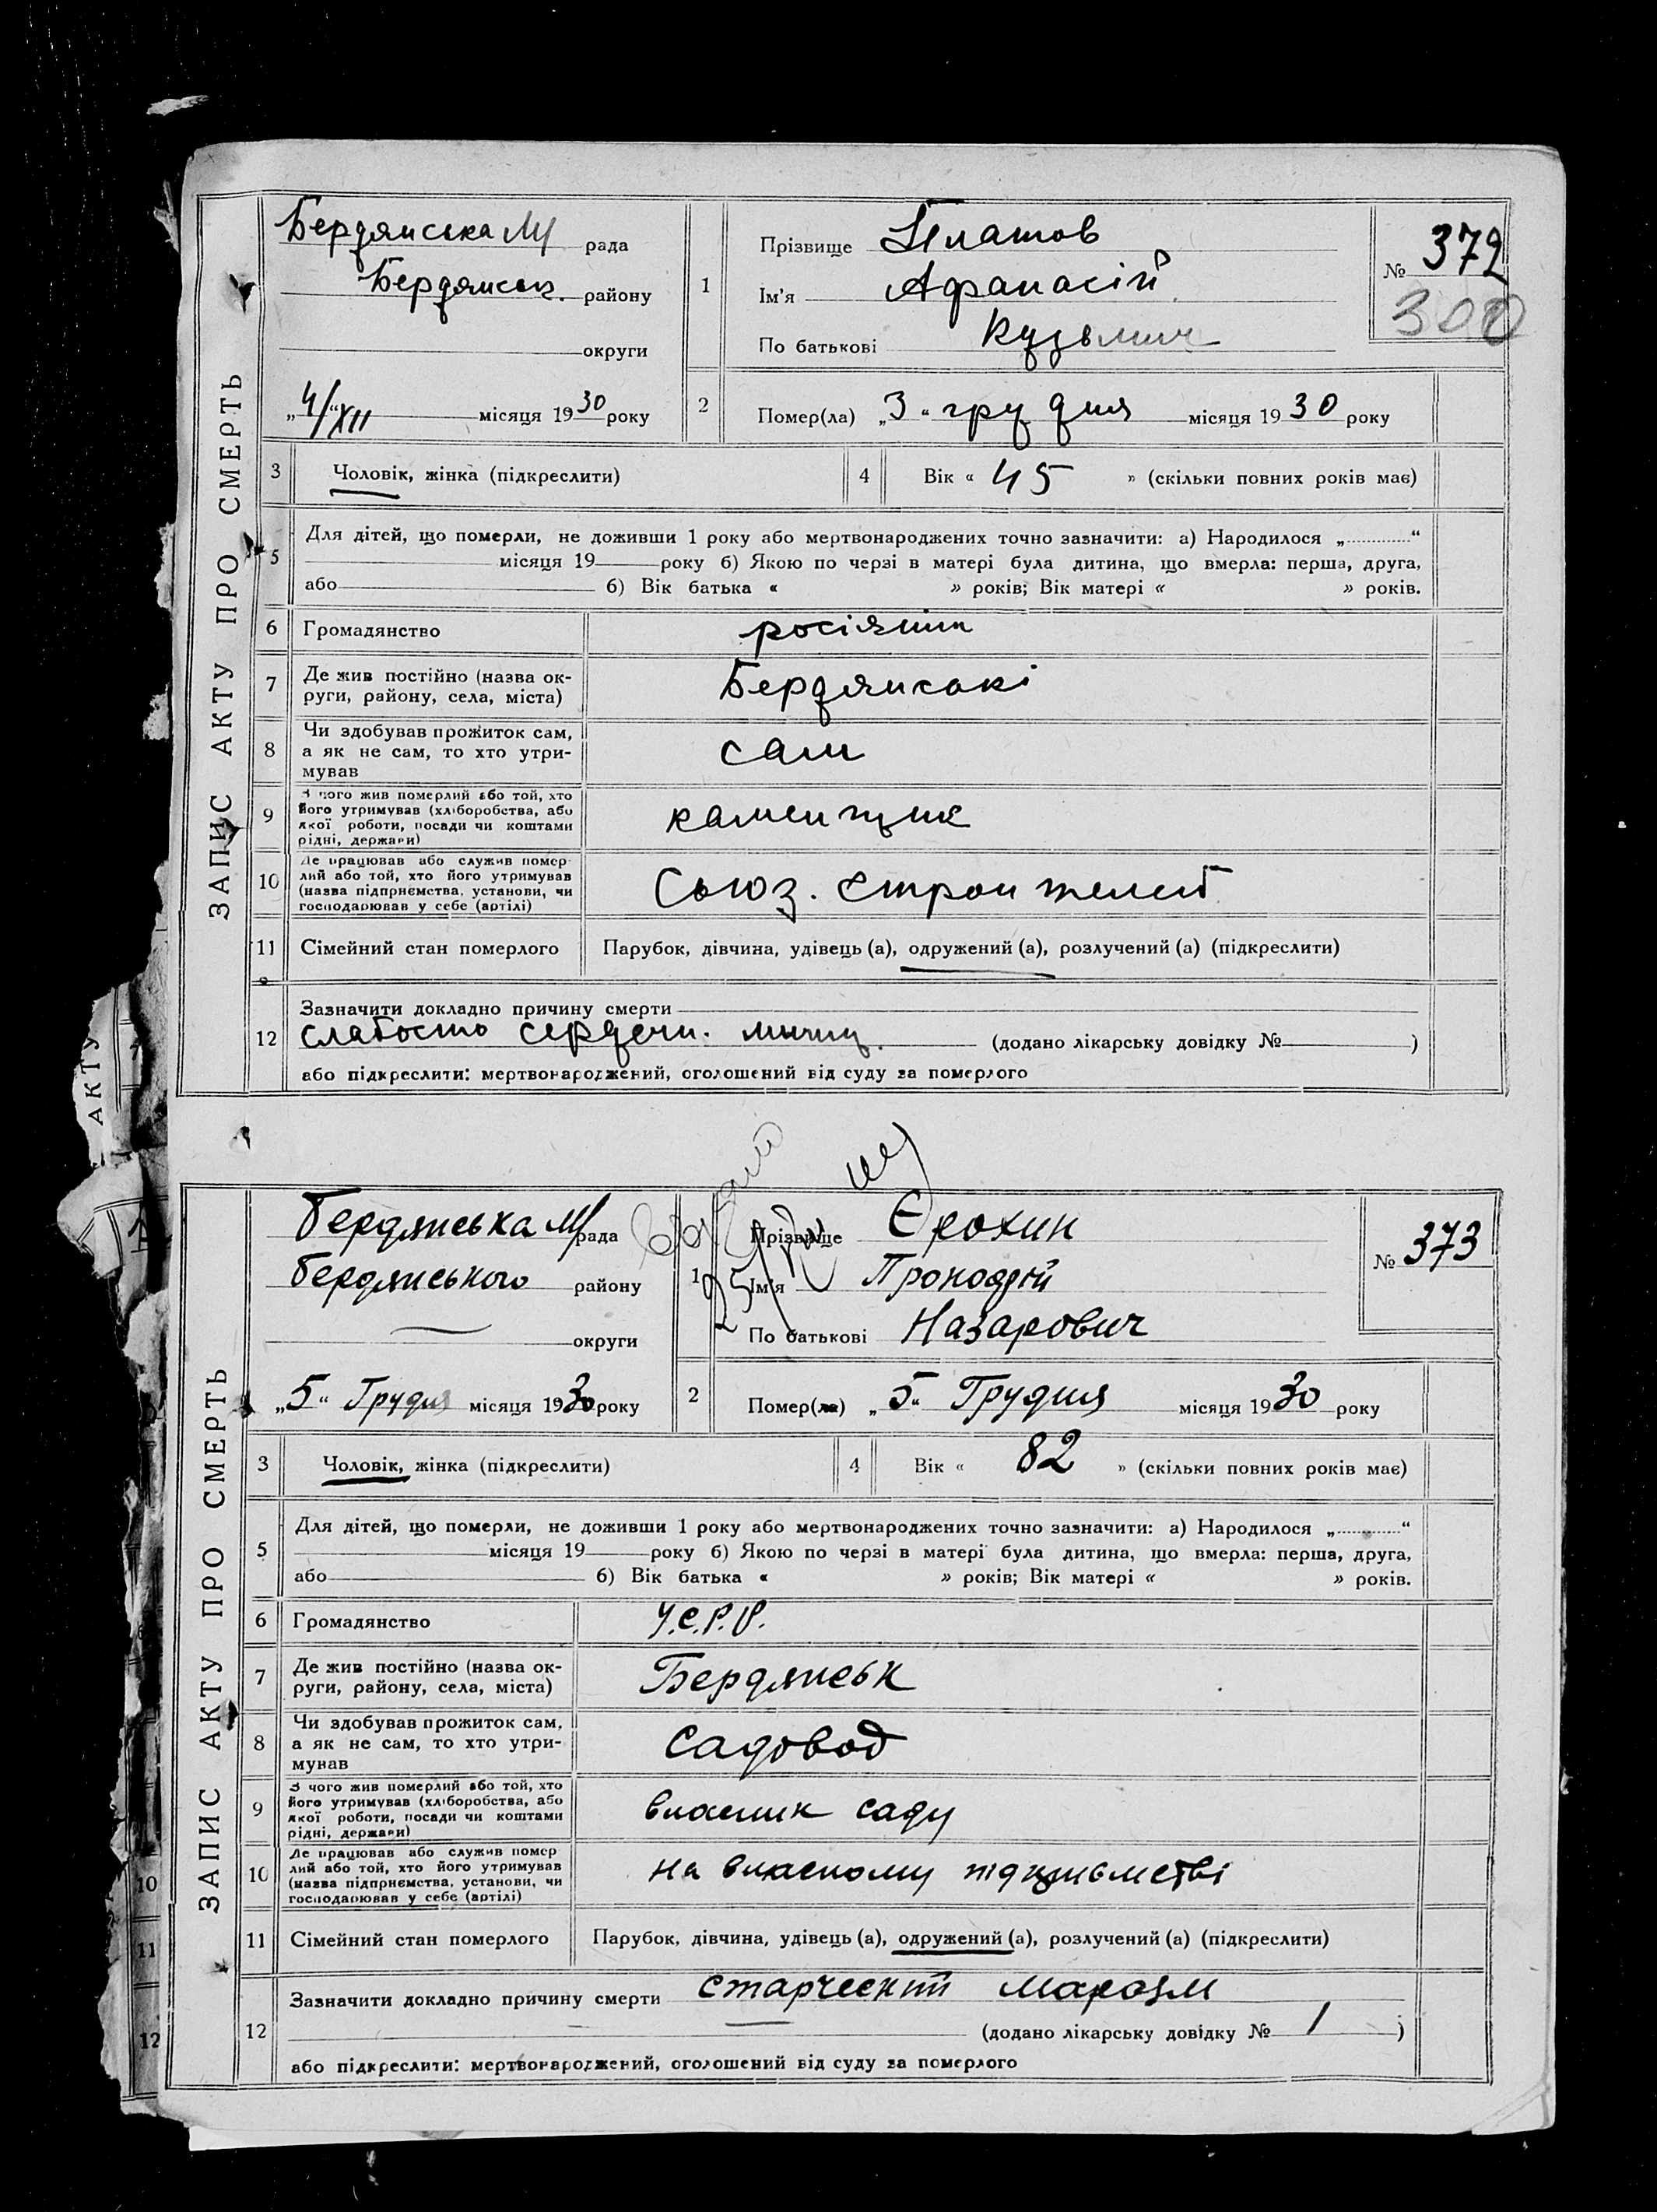 ЗАПИС АКТУ ПРО СМЕРТЬ
Бердянська М рада
Бердянськ. району
округи
„4/“ XII місяця 1930 року
1
Прізвище Платов
Ім'я Афанасій
По батькові Кузьмич
№ 372
300
2 Помер(ла) „3“ грудня місяця 1930 року
3 Чоловік, жінка (підкреслити)
4 Вік « 45 » (скільки повних років має)
5 Для дітей, що померли, не доживши 1 року або мертвонароджених точно зазначити: а) Народилося „ “
місяця 19 року б) Якою по черзі в матері була дитина, що вмерла: перша, друга,
або б) Вік батька « » років; Вік матері « » років.
6 Громадянство росіянин
7 Де жив постійно (назва ок-
руги, району, села, міста) Бердянські
8 Чи здобував прожиток сам,
а як не сам, то хто утри-
мував сам
9 З чого жив померлий або той, хто
його утримував (хліборобства, або
якої роботи, посади чи коштами
рідні, держави) каменщик
10 Де працював або служив помер-
лий або той, хто його утримував
(назва підприємства, установи, чи
господарював у себе (артілі) Союз. строителей
11 Сімейний стан померлого Парубок, дівчина, удівець (а), одружений (а), розлучений (а) (підкреслити)
12 Зазначити докладно причину смерти
слабость сердечн. мышц. (додано лікарську довідку № )
або підкреслити: мертвонароджений, оголошений від суду за померлого
АКТУ
ЗАПИС АКТУ ПРО СМЕРТЬ
Бердянська М рада
Бердянського району
округи
„5“ Грудня місяця 1930 року
1
Прізвище Єрохин
Ім'я Прокофій
По батькові Назарович
№ 373
2 Помер(ла) „5“ Грудня місяця 1930 року
3 Чоловік, жінка (підкреслити)
4 Вік « 82 » (скільки повних років має)
5 Для дітей, що померли, не доживши 1 року або мертвонароджених точно зазначити: а) Народилося „ “
місяця 19 року б) Якою по черзі в матері була дитина, що вмерла: перша, друга,
або б) Вік батька « » років; Вік матері « » років.
6 Громадянство У.С.Р.Р.
7 Де жив постійно (назва ок-
руги, району, села, міста) Бердянськ
8 Чи здобував прожиток сам,
а як не сам, то хто утри-
мував Садовод
9 З чого жив померлий або той, хто
його утримував (хліборобства, або
якої роботи, посади чи коштами
рідні, держави) власник саду
10 Де працював або служив помер
лий або той, хто його утримував
(назва підприємства, установи, чи
господарював у себе (артілі) на власному
11 Сімейний стан померлого Парубок, дівчина, удівець (а), одружений (а), розлучений (а) (підкреслити)
12 Зазначити докладно причину смерти старческий маразм
(додано лікарську довідку № 1 )
або підкреслити: мертвонароджений, оголошений від суду за померлого
10
11
12